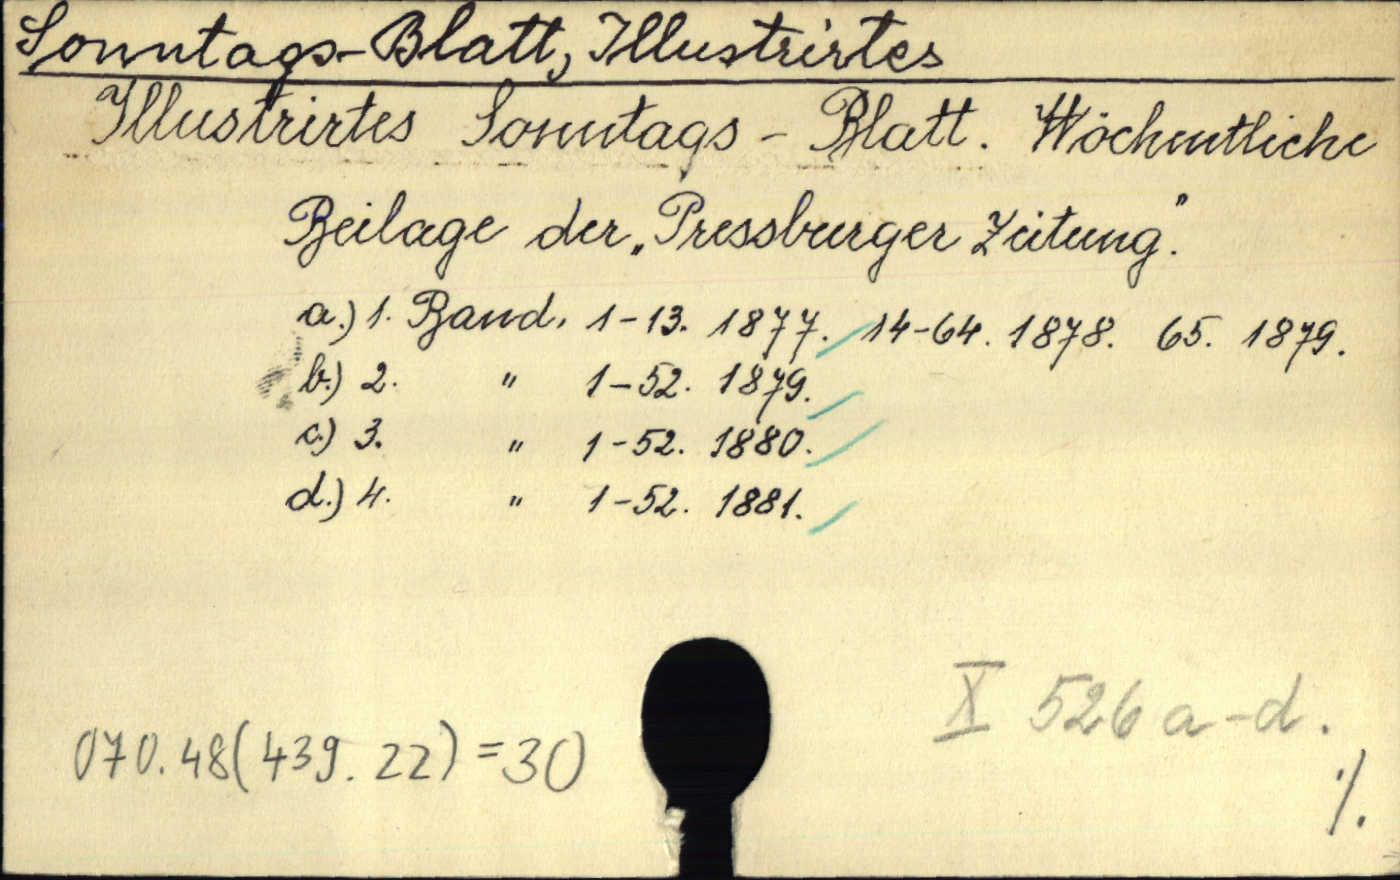 Sonntags-Blatt, Illustrirtes
Illustrirtes Sonntags - Blatt. Wöchentliche
Beilage der „Pressburger Zeitung".
a.) 1. Band. 1-13. 1877. 14-64. 1878. 65. 1879.
b.) 2. " 1-52. 1879.
c.) 3. " 1-52. 1880.
d.) 4. " 1-52. 1881.
X 526 a-d.
070.48(439.22)=30
./.